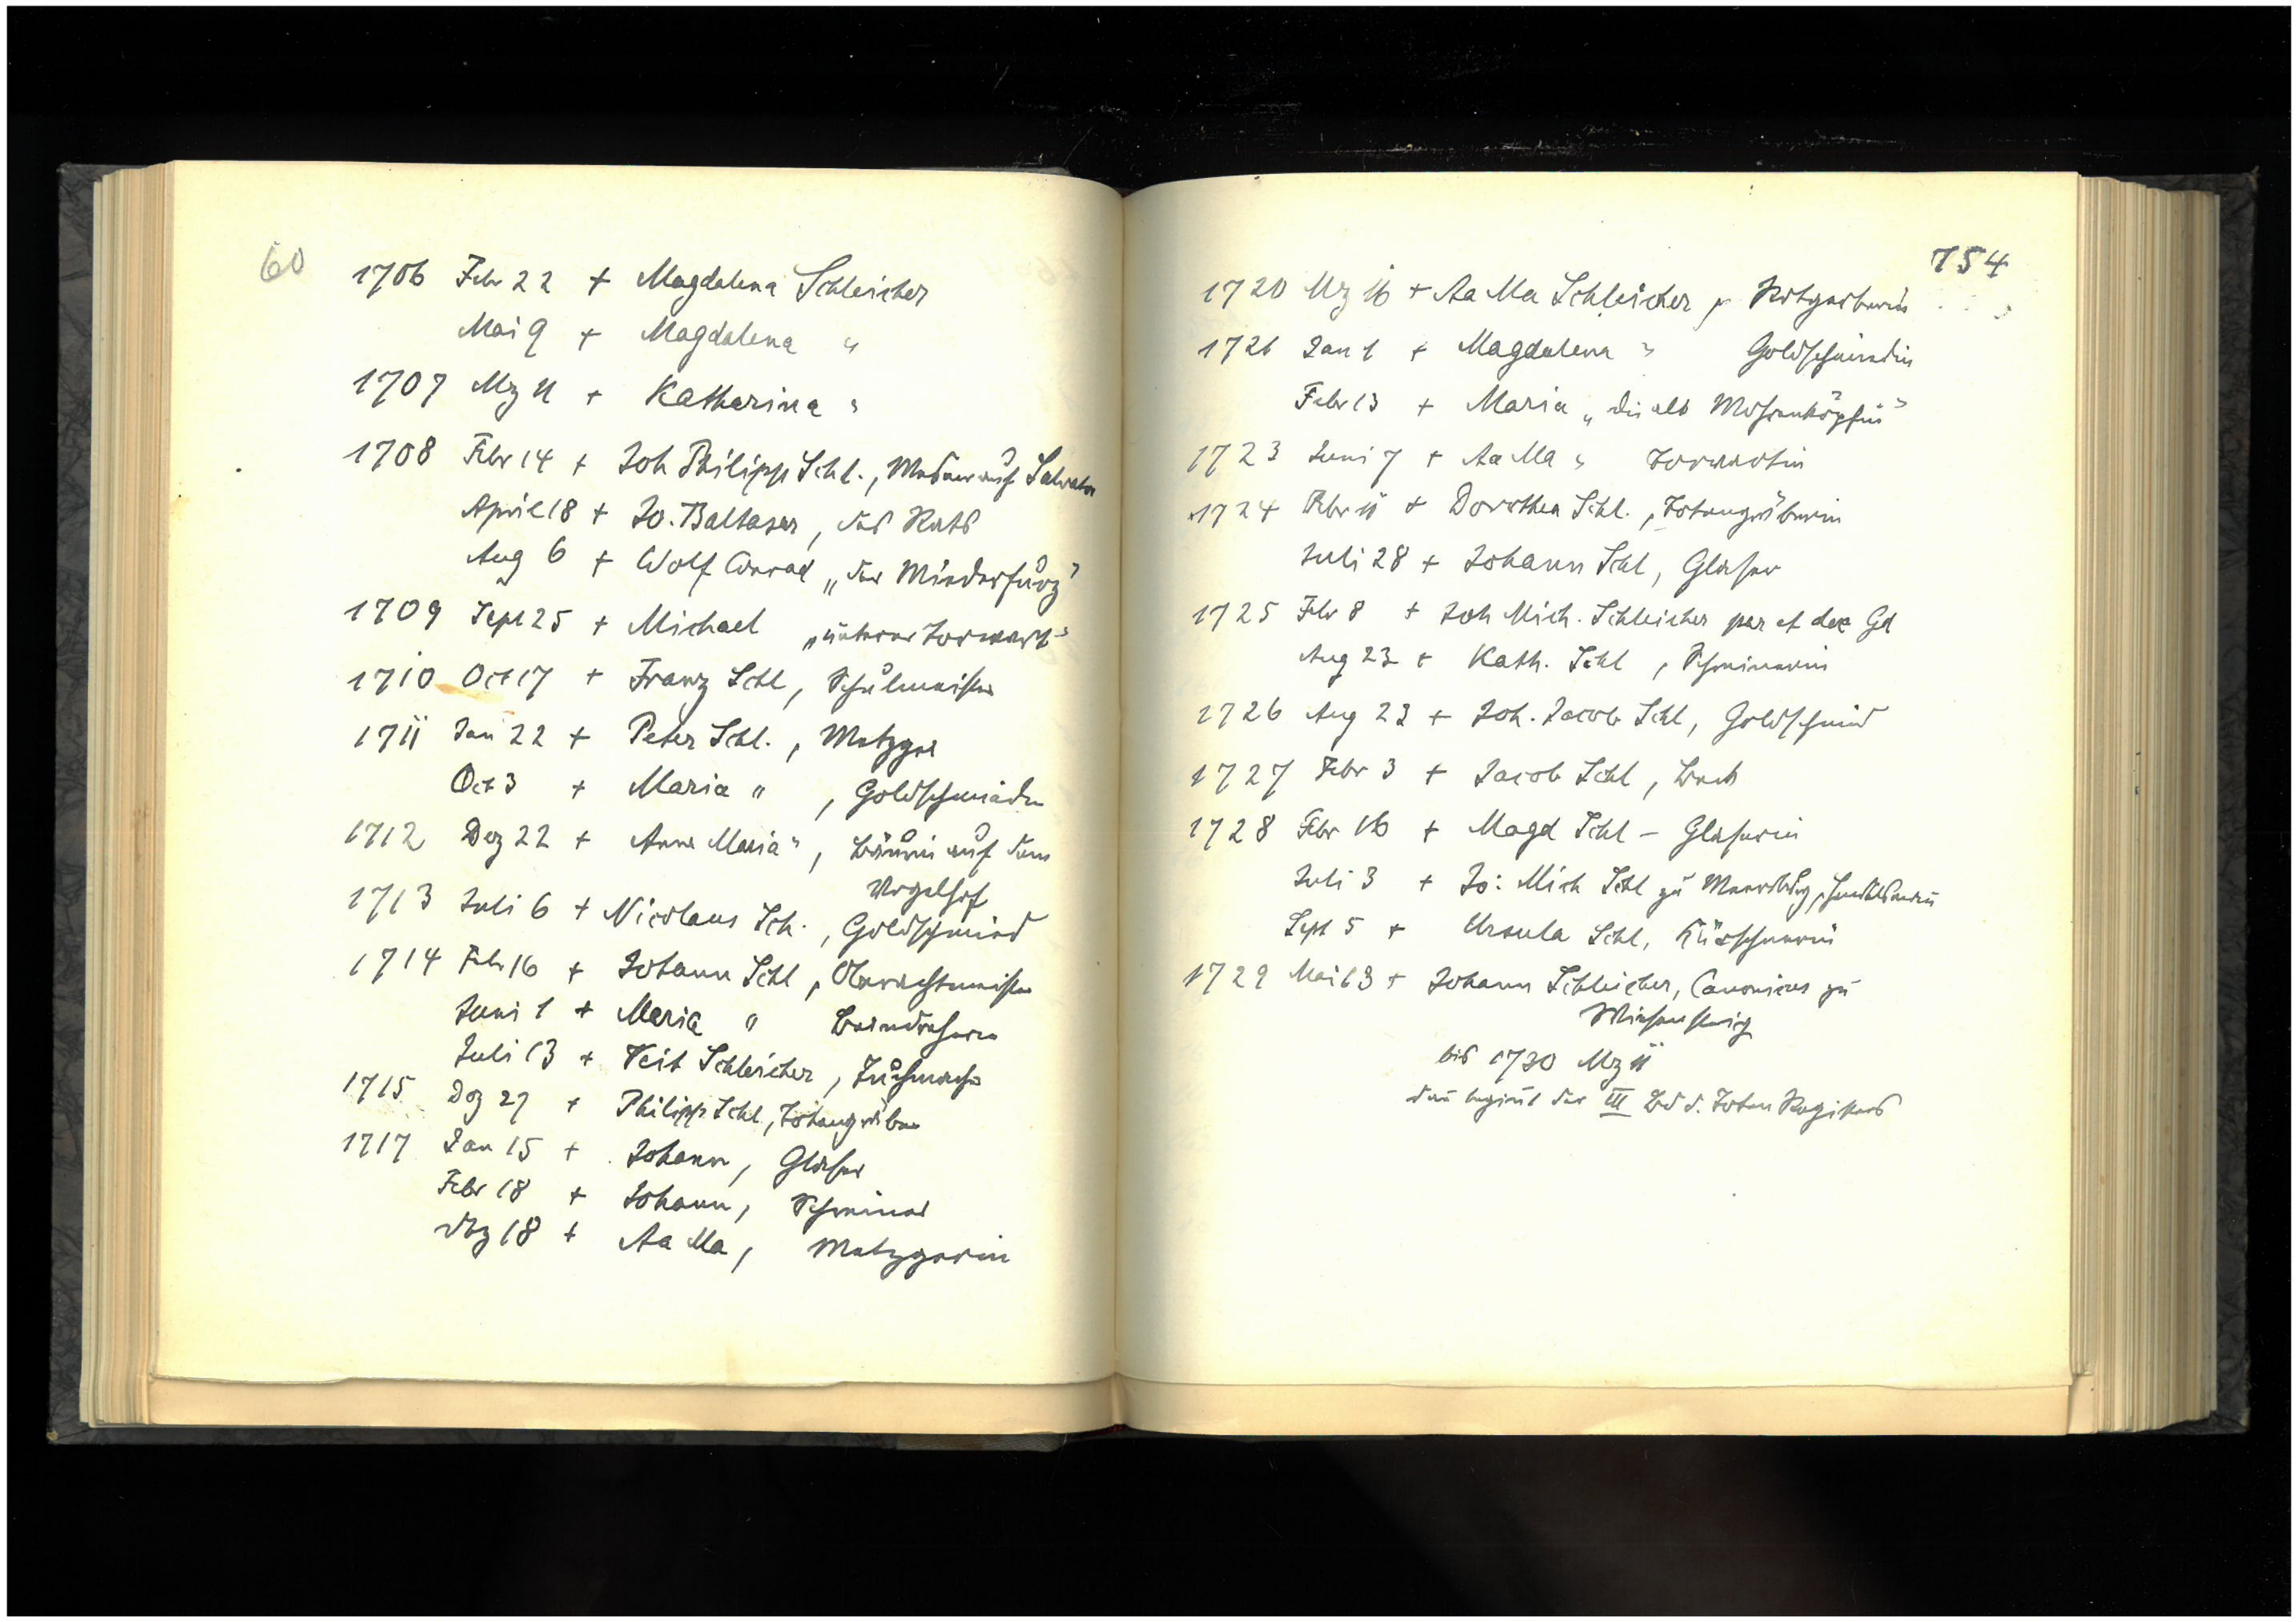 60
1706 Febr 22 + Magdalena Schleicher
Mai 9 + Magdalena "
1707 Mz 11 + Katharina "
1708 Febr 14 + Joh Philipp Schl., Mesner auf Salvator
April 18 + Jo. Baltaser, des Rats
Aug 6 + Wolf Conrad „der Minderfürz"
1709 Sept 25 + Michael „unterer Torwart"
1710 Oct 17 + Franz Schl, Schulmeister
1711 Jan 22 + Peter Schl., Metzger
Oct 3 + Maria ", Goldschmiedin
1712 Dez 22 + Anna Maria ", Bäurin auf dem
Vogelhof
1713 Juli 6 + Nicolaus Sch., Goldschmied
1714 Febr 16 + Johann Schl, Oberachtmeister
Juni 1 + Maria " Beindreherin
Juli 13 + Veit Schleicher, Tuchmacher
1715 Dez 27 + Philipp Schl., Totengräber
1717 Jan 15 + Johann, Glaser
Febr 18 + Johann, Schreiner
18 + Aa Ma, Metzgerin
754
1720 Mz 16 + Aa Ma Schleicher, Rotgerberin
1721 Jan 1 + Magdalena " Goldschmiedin
Febr 13 + Maria „die alt Mohrenköpfin"
1723 Juni 7 + Aa Ma " Torwartin
1724 Febr 11 + Dorothea Schl., Totengräberin
Juli 28 + Johann Schl, Glaser
1725 Febr 8 + Joh Mich. Schleicher par et dec Gd
Aug 23 + Kath. Schl, Schreinerin
1726 Aug 23 + Joh. Jacob Schl, Goldschmied
1727 Febr 3 + Jacob Schl, Beck
1728 Febr 16 + Magd Schl – Glaserin
Juli 3 + Jo: Mich Schl zu
Sept 5 + Ursula Schl, Kürschnerin
1729 Mai 13 + Johann Schleicher, Canonicus zu
Wiesensteig
bis 1730 Mz 11
dan beginnt der III Bd d. Toten Registers